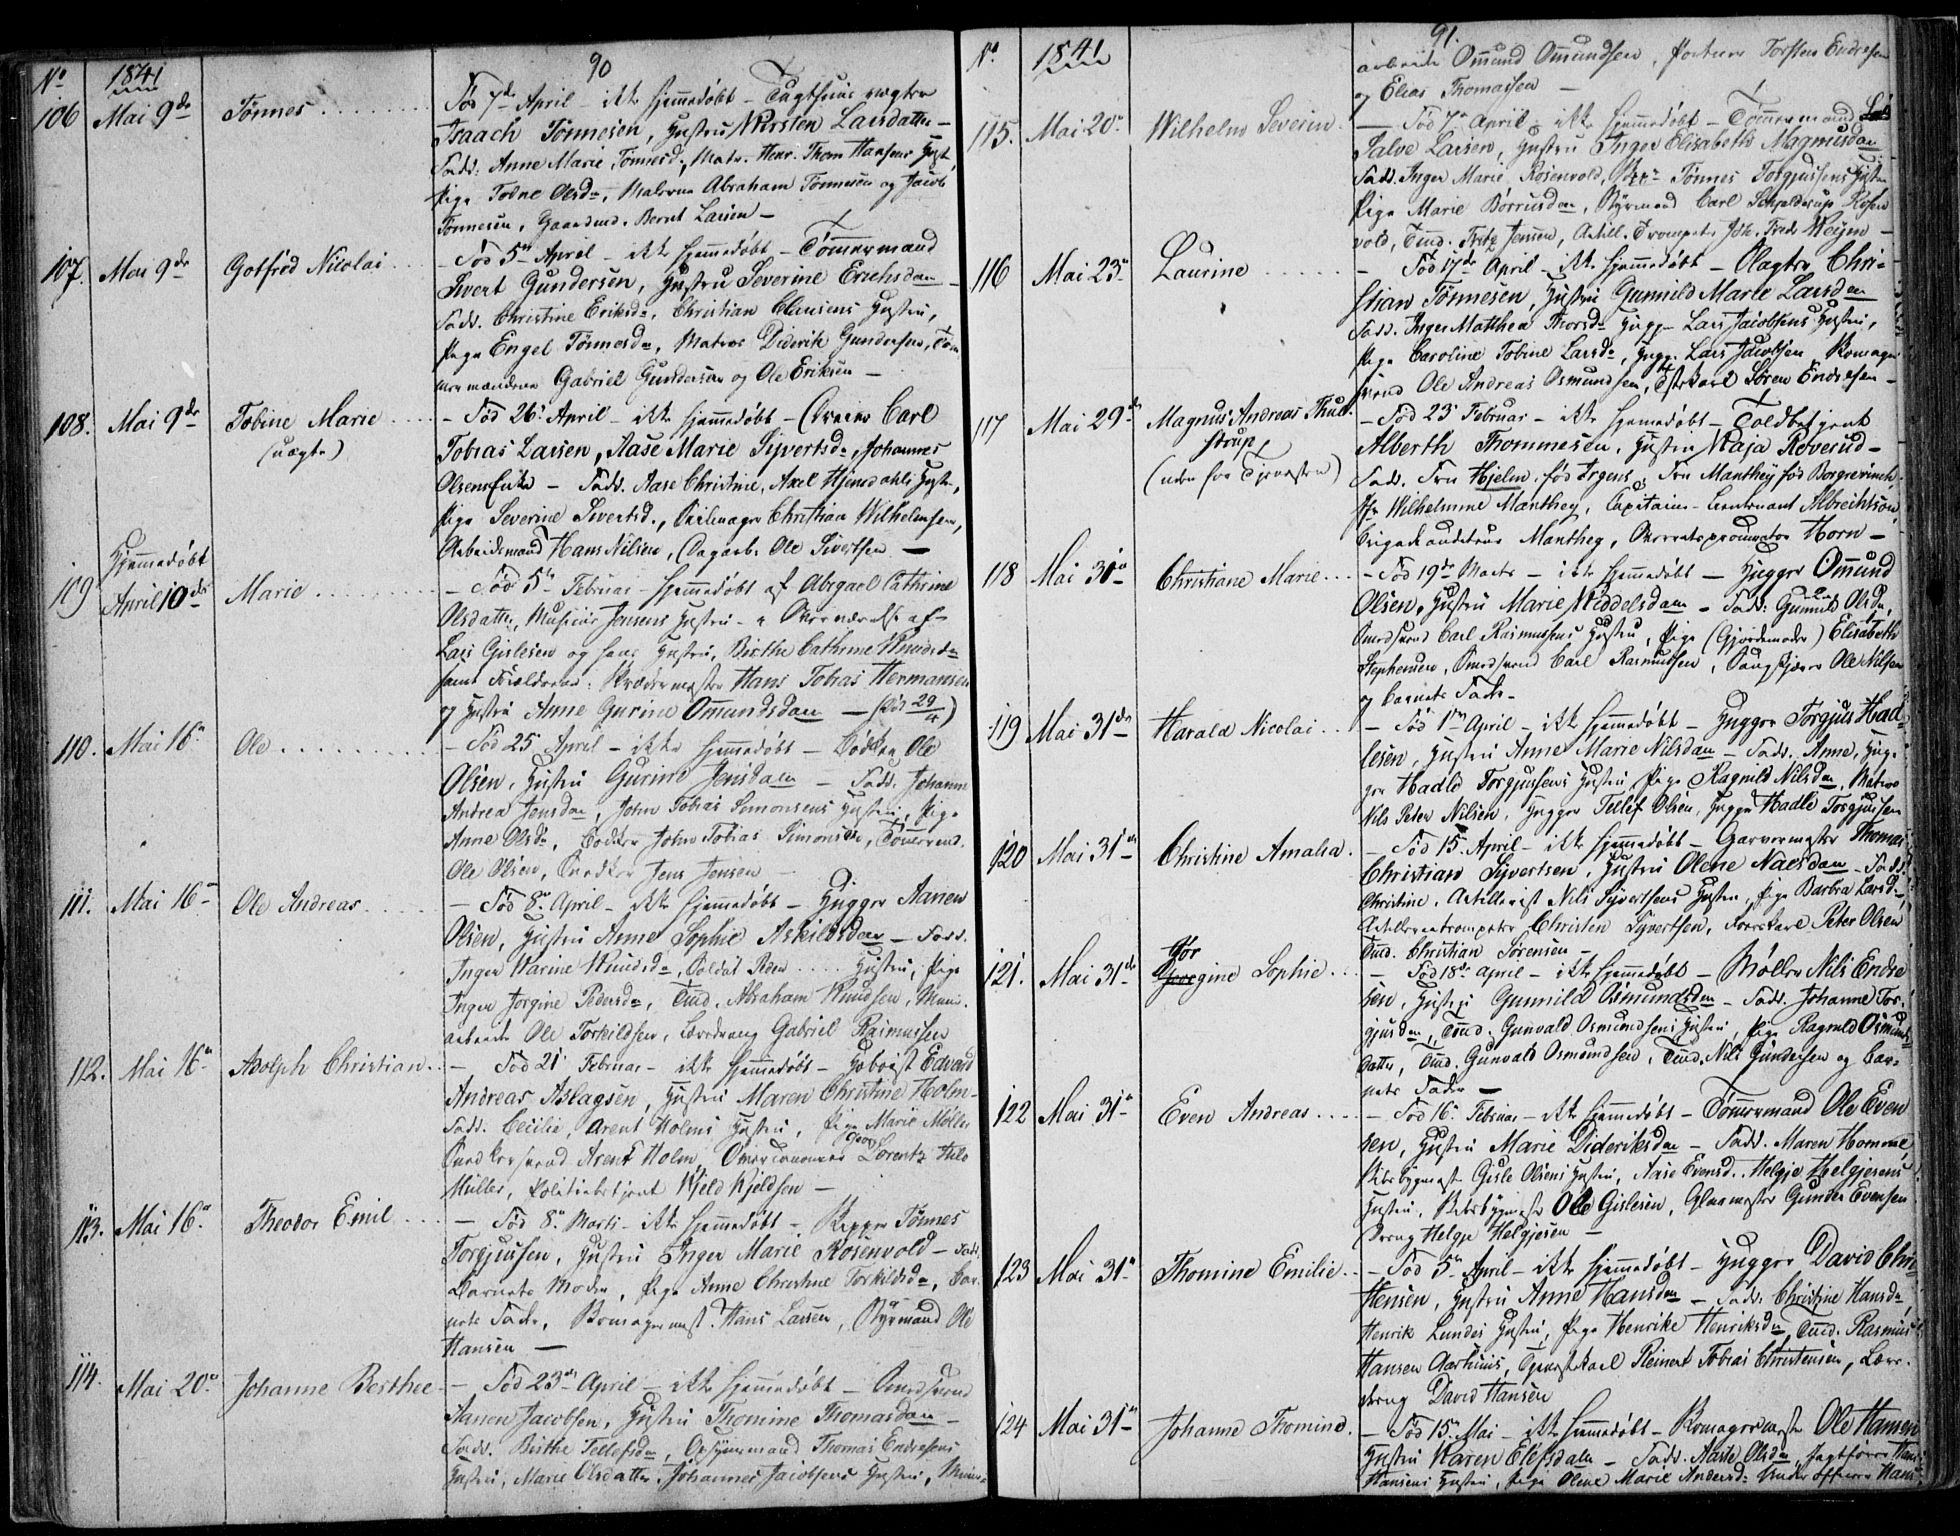 90
No 1841
106 Mai 9de Tønnes
Fød 7de April – ikke hjemmedøbt –
Isaach Tønnesen, Hustru Kirsten Larsdatter –
Fadd. Anne Marie Tønnesd., Matr. Thom Hansens Hust.
Pige Todne Olsd., Matroser Abraham Tønnesen og Jacob
Tønnesen, Gaardmd. Bernt Larsen –
107. Mai 9de Gotfród Nicolai
– Fød 5te April – ikke hjemmedøbt – Tømmermand
Sivert Gundersen, Hustru Severine Erichsdatr –
Fadd. Christine Eriksd., Christian Clausens Hustru,
Pige Engel Tønnesd., Matros Diderik Gundersen, Tøm
mermændene Gabriel Gundersen og Ole Eriksen –
108. Mai 9de Tobine Marie
(uægte)
– Fød 26. April – ikke hjemmedøbt – Carl
Tobias Larsen, Aase Marie Syvertsd., Johannes
Olsens Enke – Fadd. Aase Christine, Axel Hjemdahls Hustru,
Pige Severine Sivertsd., Christian Wilhelmsen,
Arbeidsmand Hans Nilsen, Dagarb. Ole Sivertsen –
109 Hjemmedøbt
April 10de Marie
– Fød 5te Februar – hjemmedøbt af Abigael Cathrine
Olsdatter, Jensens Hustru – i Overværelse af
Lars Gislesen og hans Hustru, Birthe Cathrine Knudsd.
samt Forældrene: Skrædermester Hans Tobias Hermansen
og Hustru Anne Gurine Omundsdatr – (død 29/4)
110. Mai 16de Ole
– Fød 25 April – ikke hjemmedøbt – Bødker Ole
Olsen, Hustru Gurine Jensdatr – Fadd. Johanne
Andrea Jensdatr, John Tobias Simonsens Hustru, Pige
Anne Olsd., Bødker John Tobias Simonsen, Tømmermd.
Ole Olsen, Snedker Jens Jensen –
111. Mai 16de Ole Andreas
– Fød 8de April – ikke hjemmedøbt – Hugger Aanen
Olsen, Hustru Anne Sophie Askildsdatr – Fadd.
Inger Karine Knudsd., Soldat Peder .... Hustru, Pige
Inger Jorgine Pedersd., Tmd. Abraham Knudsen, Muur-
arbeider Ole Torkildsen, Læredreng Gabriel Rasmussen
112. Mai 16de Adolph Christian
– Fød 21 Februar – ikke hjemmedøbt – Hoboist Edvard
Andreas Aslagsen, Hustru Maren Christine Holm –
Fadd. Cecilie, Arent Holms Hustru, Pige Marie Møller
Snedkersvend Arent Holm, Overcanoneer Georg Lorentz Thilo
Müller, Politiebetjent Kjeld Kjeldsen –
113. Mai 16de Theodor Emil
– Fød 8de Marts – ikke hjemmedøbt – Skipper Tønnes
Torgjussen, Hustru Inger Marie Rosenvold – Fadd.
Barnets Moder, Pige Anne Christine Torkildsd., Bar-
nets Fader, Hans Larsen, Styrmand Ole
Hansen –
114. Mai 20de Johanne Berthee
– Fød 23de April – ikke hjemmedøbt – Smedsvend
Aanon Jacobsen, Hustru Thomine Thomasdatr –
Fadd. Birthe Tellefsdr, Opsynsmand Thomas Endresens
Hustru, Marie Olsdatter, Johannes Jacobsens Hustru, Muur-
91.
No 1841
arbeider Omund Omundsen, Torsten Endresen
og Elias Thomassen –
115. Mai 20de Wilhelm Severin
– Fød 7de April – ikke hjemmedøbt – Tømmermand
Salve Larsen, Hustru Inger Elisabeth Magnusdatr
Fadd. Inger Marie Rosenvold, Skr. Tønnes Torgjussens Hustru
Pige Marie Børresdatr, Styrmand Carl Schjelderup Rosen
vold, Tmd. Fritz Jensen, Artill. Trompeter Joh. Fredr. Weyen –
116 Mai 23de Laurine
– Fød 17de April – ikke hjemmedøbt – Slagter Chri-
stian Tønnesen, Hustru Gunnild Marie Larsdatr
Fadd. Inger Matthea Thorsd., Hugger Lars Jacobsens Hustru,
Pige Caroline Tobine Larsd., Hugg. Lars Jacobsen, Skomager
svend Ole Andreas Osmundsen, Søren Endresen –
117 Mai 29de Magnus Andreas Thul
strup
(uden for Tjenesten)
– Fød 23 Februar – ikke hjemmedøbt – Toldbetjent
Alberth Thommesen, Hustru Maja Røverud –
Fadd. Fru Hjelm, fød Jrgens, Fru Manthey fød Borgrevinck,
Fr. Wilhelmine Manthey, Capitain-Leutenant Albrechtson,
Brigadeauditeur Manthey, Overretsprocurator Horn –
118 Mai 31te Christiane Marie
– Fød 19de Marts – ikke hjemmedøbt – Hugger Omund
Olsen, Hustru Marie Middelsdatr – Fadd: Gunnild Olsdr,
Smedsvend Carl Rasmussens Hustru, Pige (Gjordemoder) Elisabeth
Stephensen, Smedsvend Carl Rasmussen, Ole Nilsen
og Barnets Fader –
119 Mai 31te Harald Nicolai
– Fød 1ste April – ikke hjemmedøbt – Hugger Torgjus Had-
lesen, Hustru Anne Marie Nilsdatr – Fadd. Anne, Hug-
ger Hadle Torgjussens Hustru, Pige Ragnild Nilsdatr, Matros
Nils Peter Nilsen, Hugger Tellef Olsen, Hugger Hadle Torgjussen
120 Mai 31te Christine Amalia
– Fød 15. April – ikke hjemmedøbt – Garvermester Thomas
Christian Syvertsen, Hustru Olene Nilsdatr – Fadd.
Christine, Artillerist Nils Syvertsens Hustru, Pige Barbra Larsd.,
Artilleritrompeter Christen Syvertsen, Peter Olsen
Tmd. Christian Sørensen –
121. Mai 31te Jørgine Sophie
– Fød 18de April – ikke hjemmedøbt – Møller Nils Endre
sen, Hustru Gunnild Osmundsdatr – Fadd. Johanne Tor-
gjusdatr, Tmd. Gunvald Osmundsens Hustru, Pige Ragnild Osmunds-
datter, Tmd. Gunvald Osmundsen, Tmd. Nils Gundersen og Bar-
nets Fader –
122 Mai 31te Even Andreas
– Fød 16. Februar – ikke hjemmedøbt – Tømmermand Ole Even
sen, Hustru Marie Dideriksdatr – Fadd. Maren Homme,
Skibsbygmester Gisle Olsens Hustru, Aase Evensd. Helgje Helgjesens
Hustru, Skibsbygmester Ole Gislesen, Glarmester Gunder Evensen
Dreng Helgje Helgjesen –
123 Mai 31te Thomine Emilie
– Fød 5te April – ikke hjemmedøbt – Hugger David Chri-
stensen, Hustru Anne Hansdatr – Fadd: Christine Hansd.
Henrik Lundes Hustru, Pige Henrike Henriksdr, Tmd. Rasmus
Hansen Aarhuus, Reinert Tobias Christensen, Lære-
dreng David Hansen
124 Mai 31te Johanne Thomine
– Fød 15de Mai – ikke hjemmedøbt – Skomagermester Ole Hansen
Hustru Karen Elefsdatr – Fadd. Marte Olsdr, Jagtfører Hans
Hansens Hustru, Pige Olene Marie Andersd. Underofficer Hans